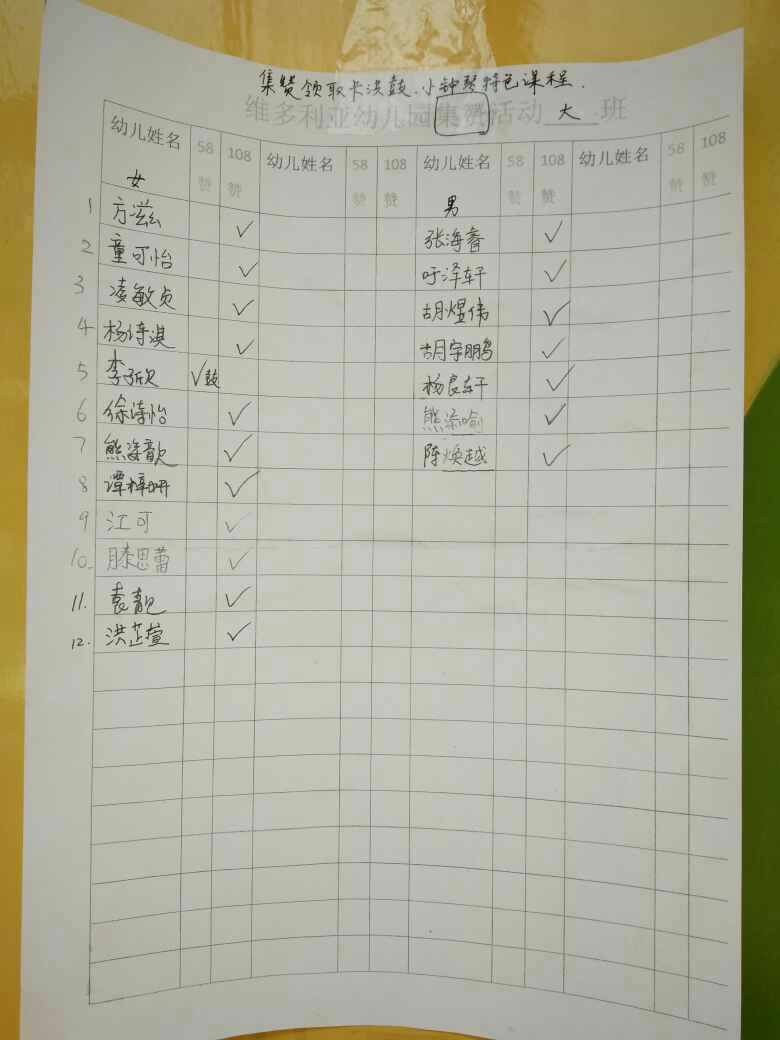 集赞领取卡洪鼓.小钟琴特色课程.
维多利亚幼儿园集赞活动 大 班
幼儿姓名 58赞 108赞 幼儿姓名 58赞 108赞 幼儿姓名 58赞 108赞 幼儿姓名 58赞 108赞
女 男
1 方滋 ✓ 张海睿 ✓
2 童可怡 ✓ 叶泽轩 ✓
3 凌敏贞 ✓ 胡煜伟 ✓
4 杨诗淇 ✓ 胡宇鹏 ✓
5 李欣 ✓鼓 杨良轩 ✓
6 徐诗怡 ✓ 熊添喻 ✓
7 熊姿歆 ✓ 陈焕越 ✓
8 谭梓妍 ✓
9 江可 ✓
10. 滕思蕾 ✓
11. 袁靓 ✓
12. 洪芷萱 ✓